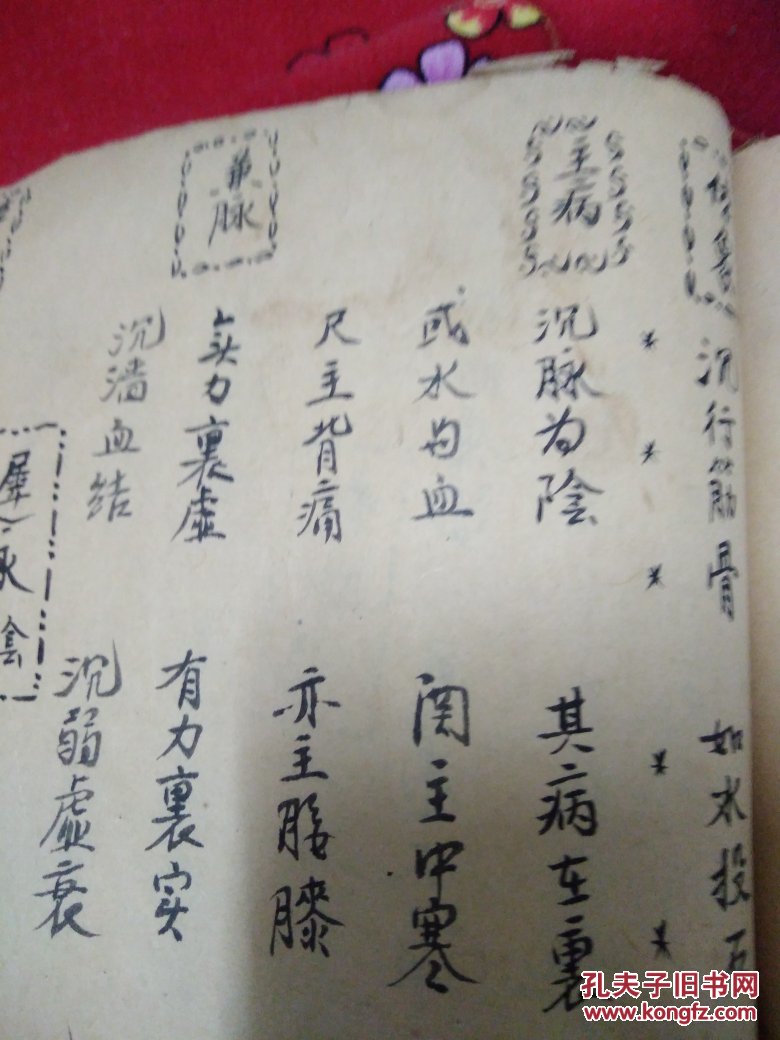 沉行筋骨 如水投石
主病
沉脉为陰 其病在裏
或水与血 関主中寒
尺主背痛 亦主腰膝
兼脉
无力裏虚 有力裏实
沉濇血结 沉弱虚衰
孔夫子旧书网
www.kongfz.com